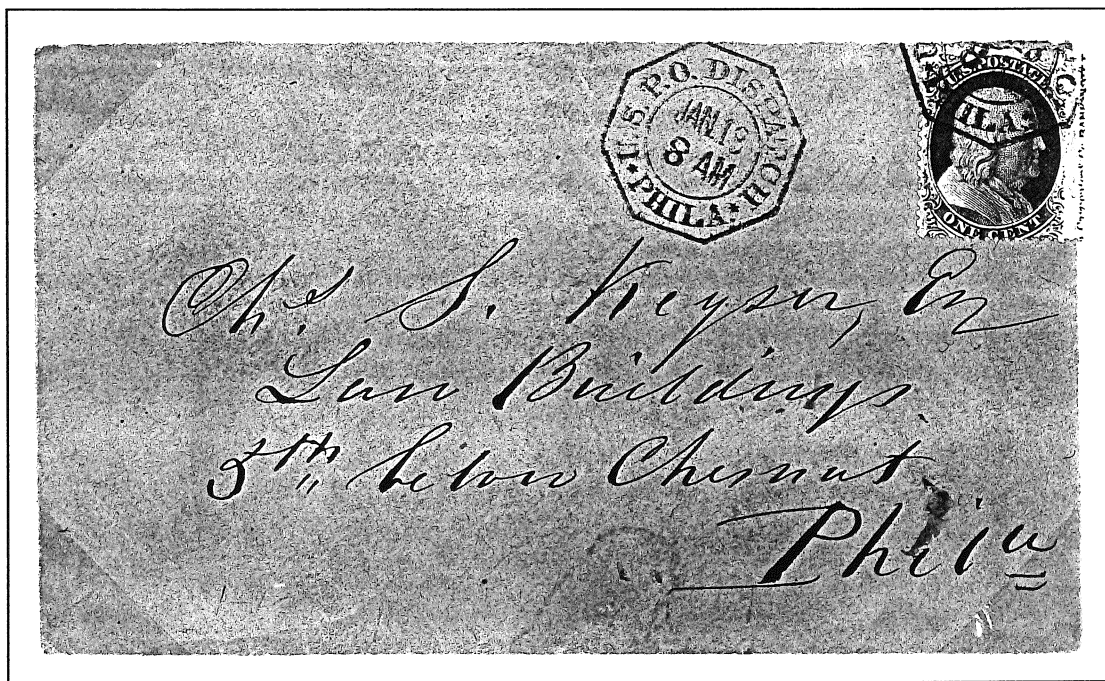 U.S.P.O. DISPATCH
JAN.19
8 AM
PHILA
U.S. POSTAGE
PHILA
ONE CENT
Chs. S. Keyser, Esq
Law Buildings
5th below Chesnut
Phila